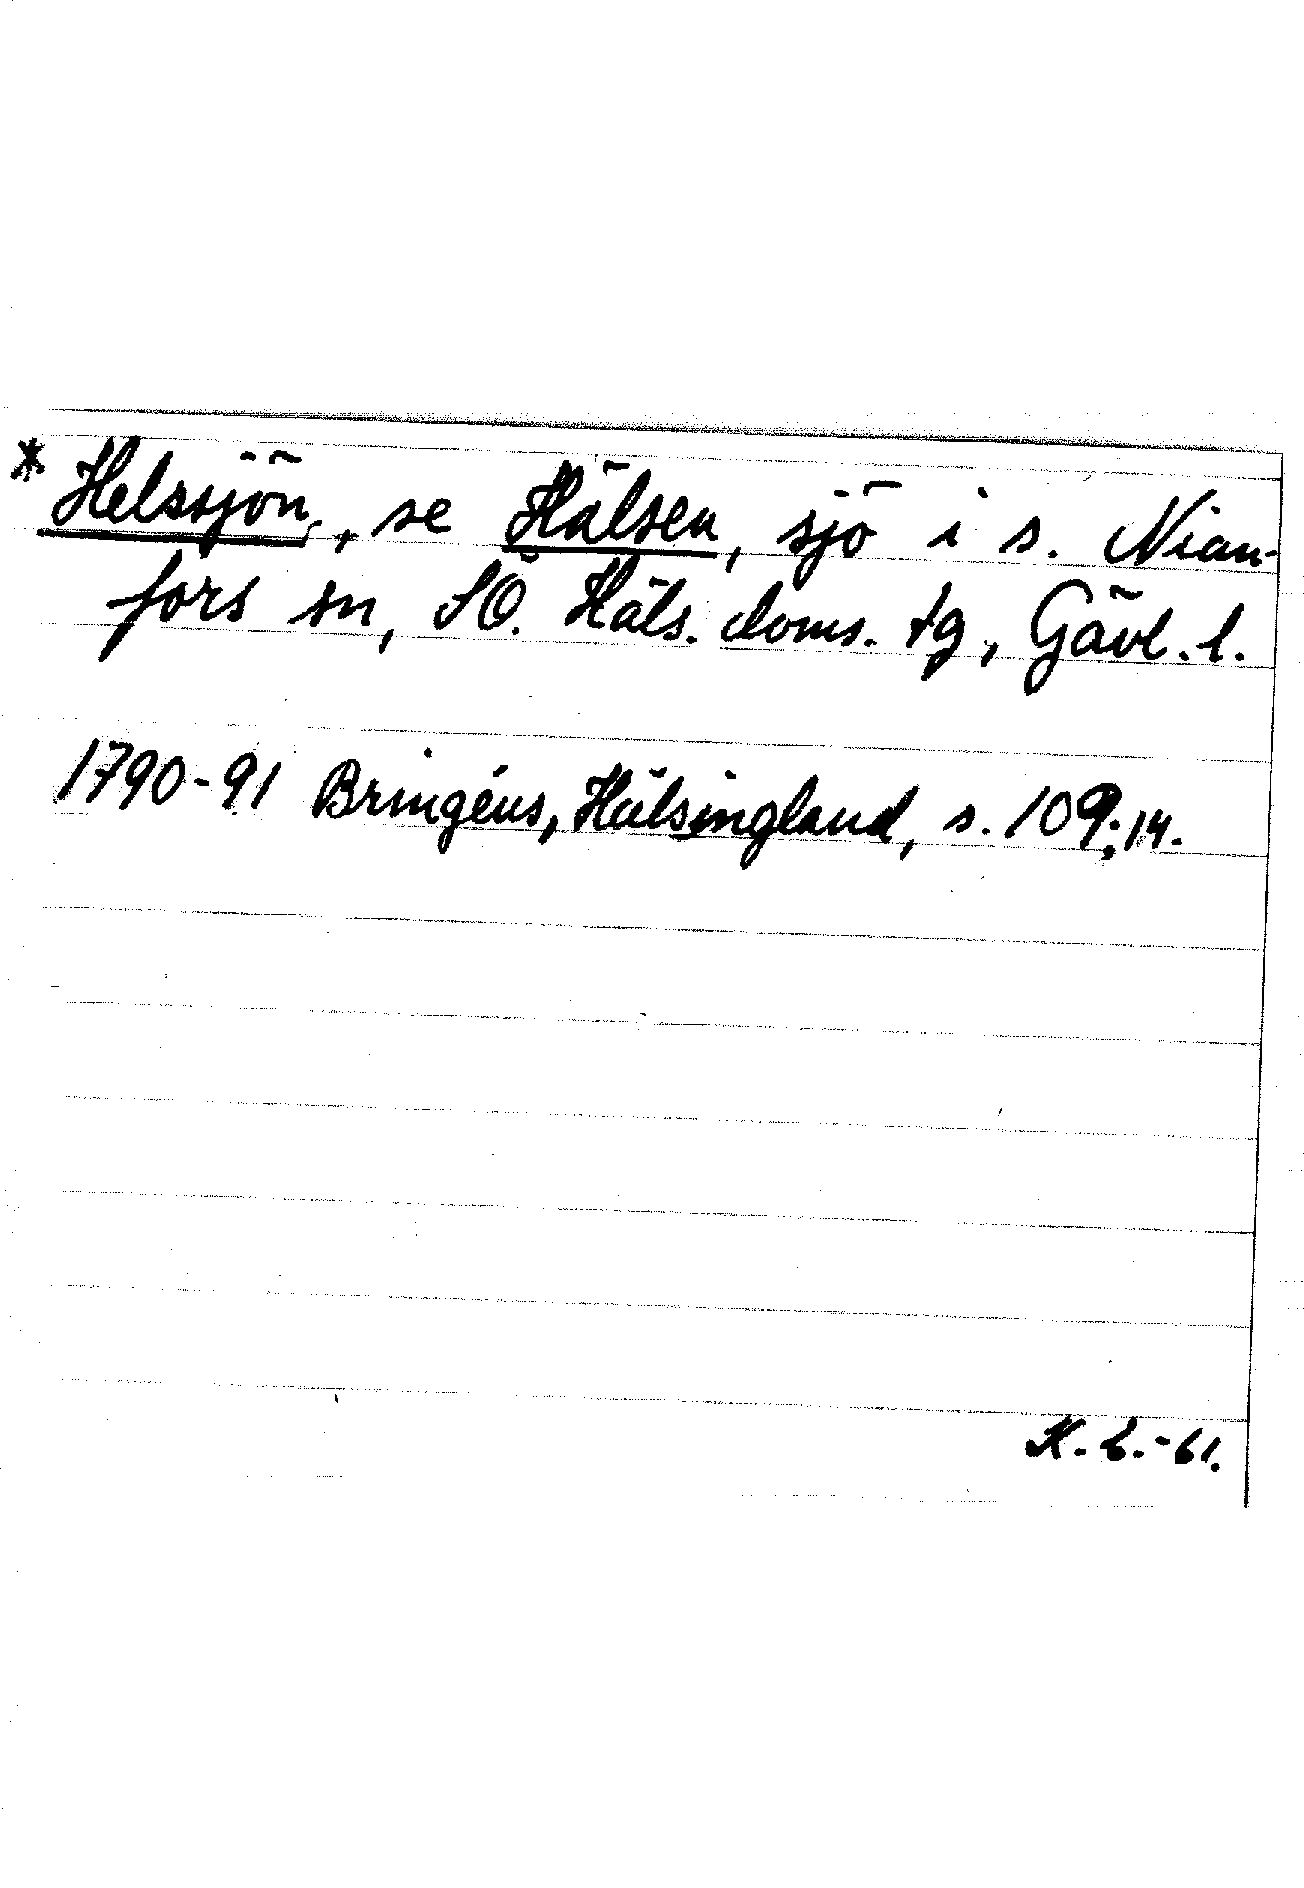 * Helssjön, se Hälsen, sjö i s. Nian-
fors sn, SÖ. Häls. doms. tg, Gävl. l.
1790-91 Bringéus, Hälsingland, s. 109; 14.
K. L. -61.